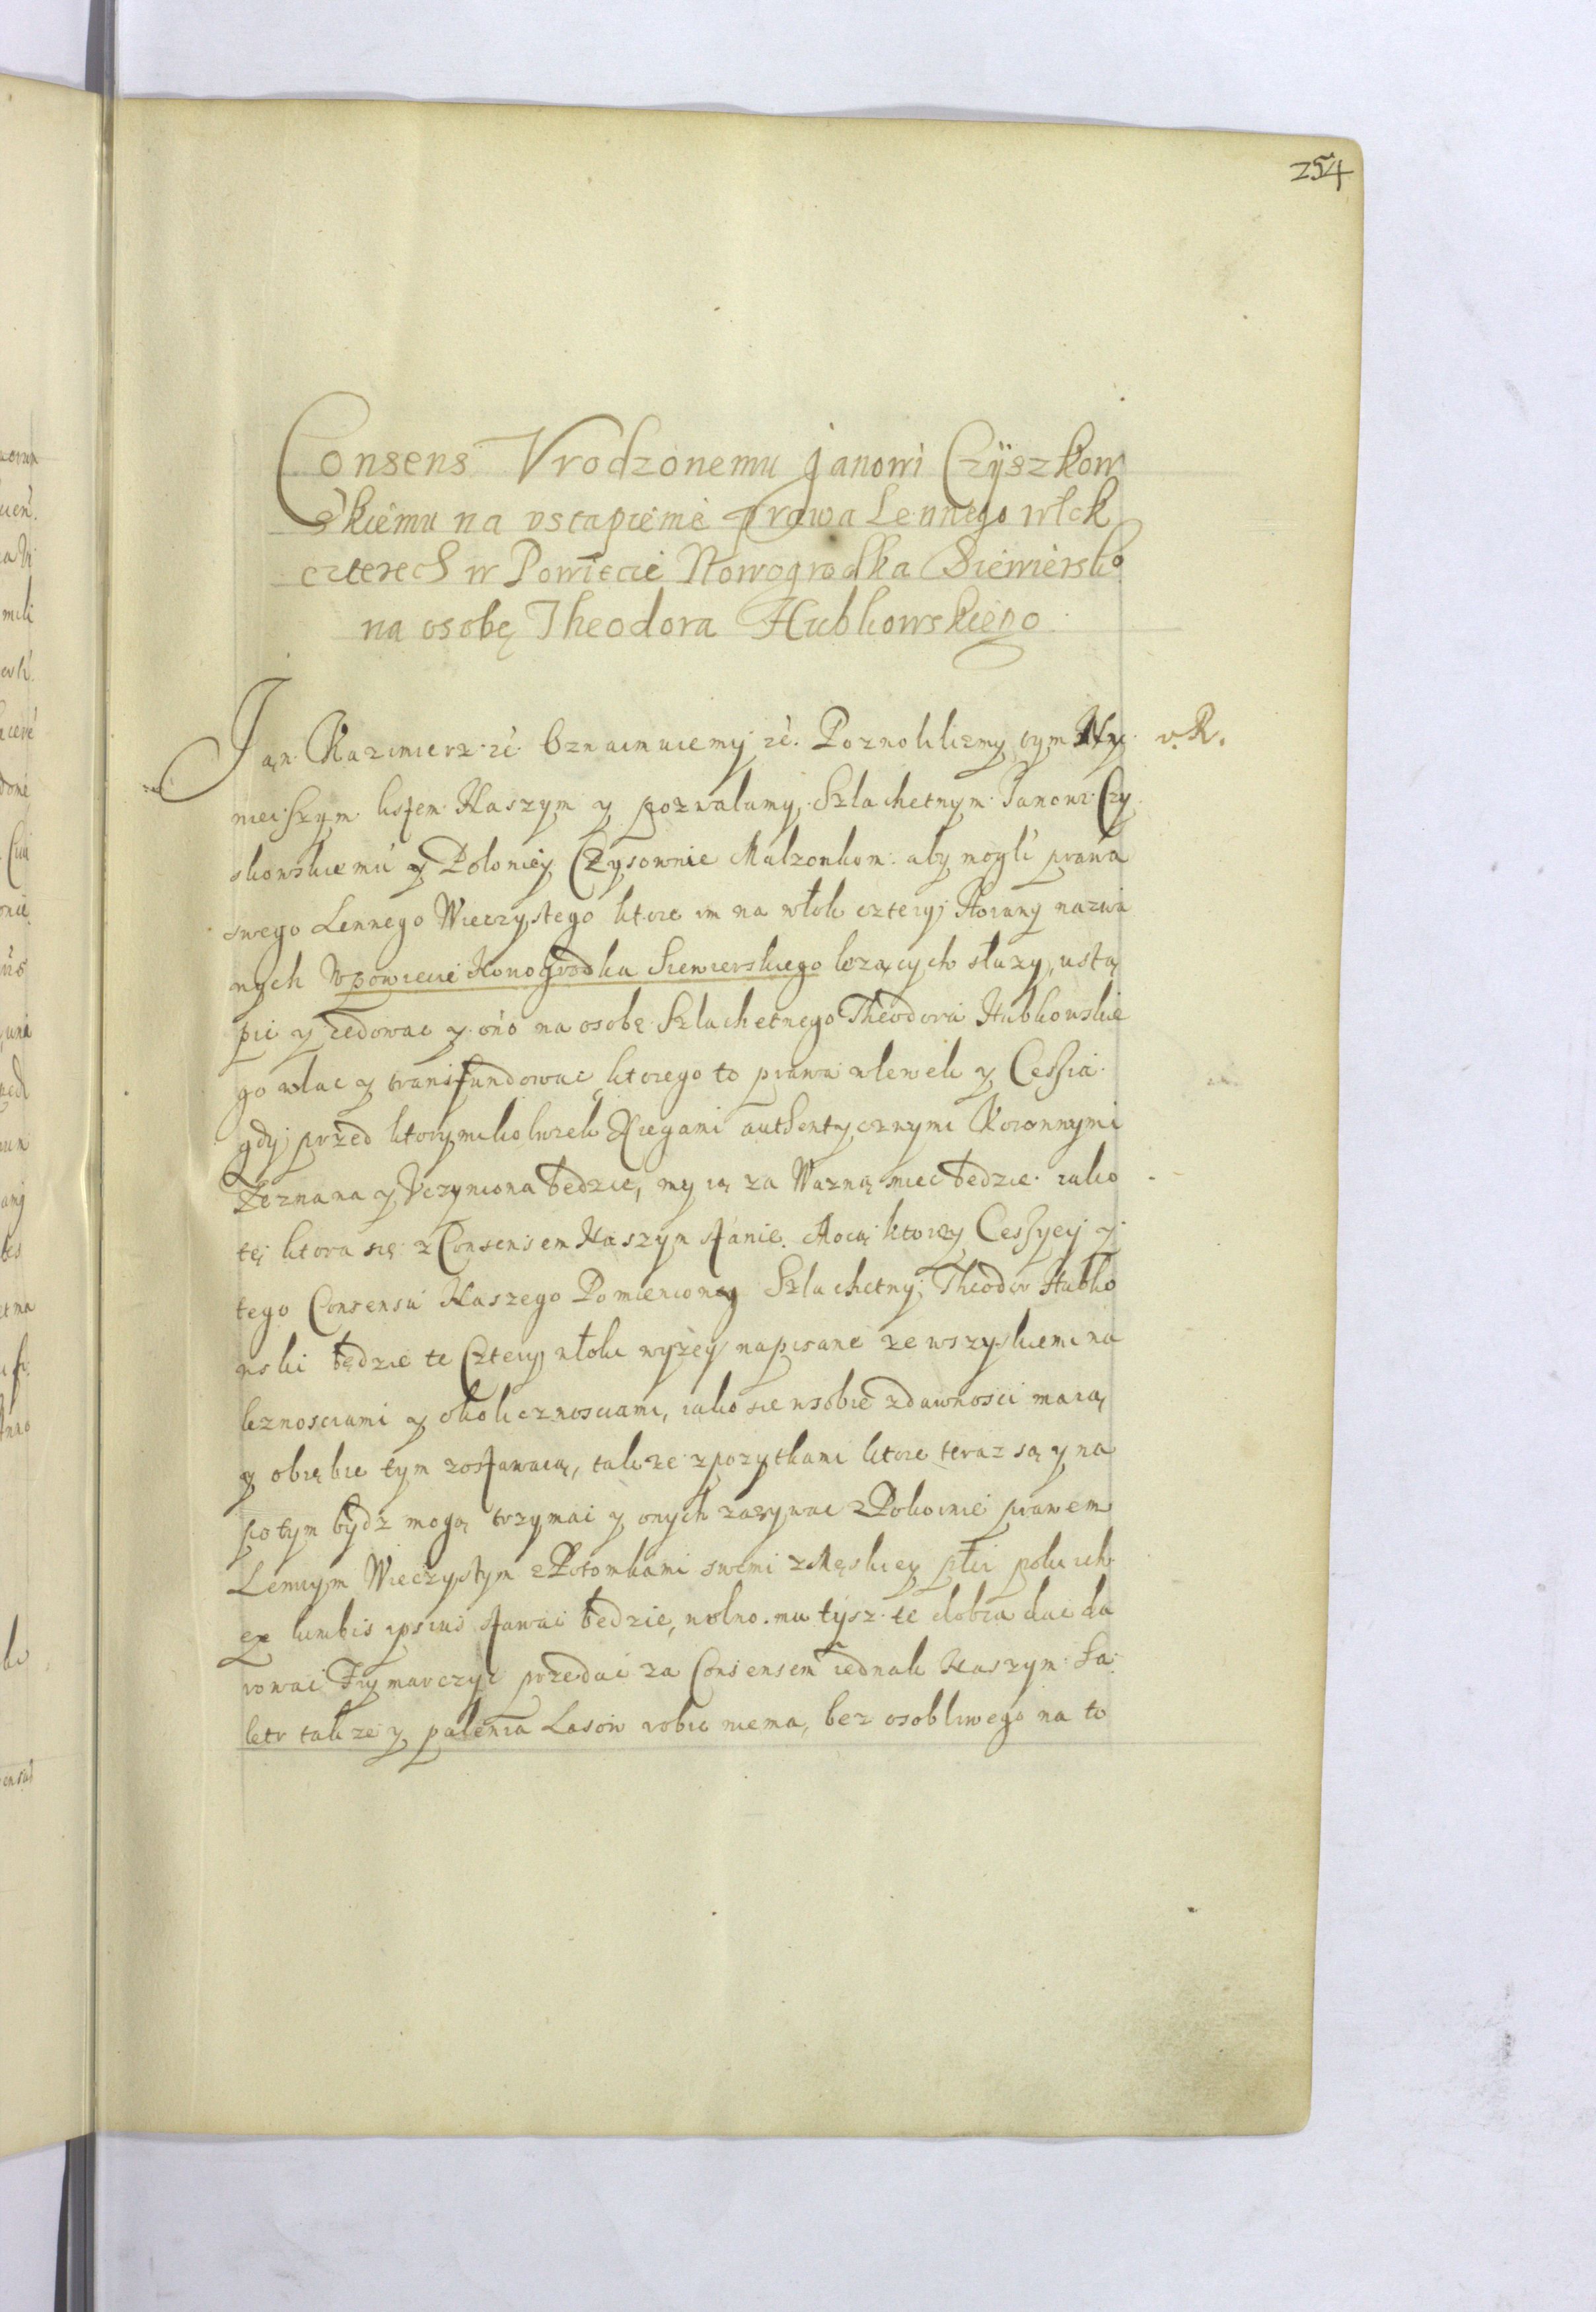 254
Consens Vrodzonemu Janowi Czÿszkow
skiemu na vstapienie prawa Lennego włok
czterech w Powiecie Nowogrodka Siewiersko
na osobę Theodora Hubkowskiego
Jan Kazimierz zć Oznaimuiemy zć. Pozwoliliszmy tym Ny v. R.
nieiszym listem Naszym y pozwalamy, Szlachetnym Janowi Czy
skowskiemu y Poloniey Czysownie Malzonkom aby mogli prawa
swego Lennego Wieczystego ktore im na włok cztery nazwa
nych w powiecie Nonogrodku Siewierskiego lezących słuzy, ustą
pic y cedowac y ono na osobę Szlachetnego Theodora Hubkowskie
go wlac y transfundowac ktorego to prawa wlewek y Cessia
gdy przed ktorymikolwiek Xiegami authentycznymi Koronnymi
Zeznana y Vczyniona będzie, my ią za Wazną miec będzie iako
tę ktora się z Consensem Naszym stanie. Mocą ktorey Cessyey y
tego Consensu Naszego Pomieniony Szlachetny Theodor Hubko
wski będzie te Cztery włoki wyżey napisane ze wszyskiemi na
leznosciami y okolicznosciami, iako sie w sobie zdawnosci maią
y obrębie tym zostawaią, takze z pozytkami ktore teraz są y na
potym bydz mogą trzymac y onych zazywac z Pokoinie prawem
Lennym Wieczystym z Potomkami swemi z Męskiey płci poki ich
ex lumbis ipsius stawac będzie, wolno mu tysz te dobra dac da
rowac Frymarczyc przedac za Consensem iednak Naszym Sa
letr takze y palenia Lasow robic niema, bez osobliwego na to